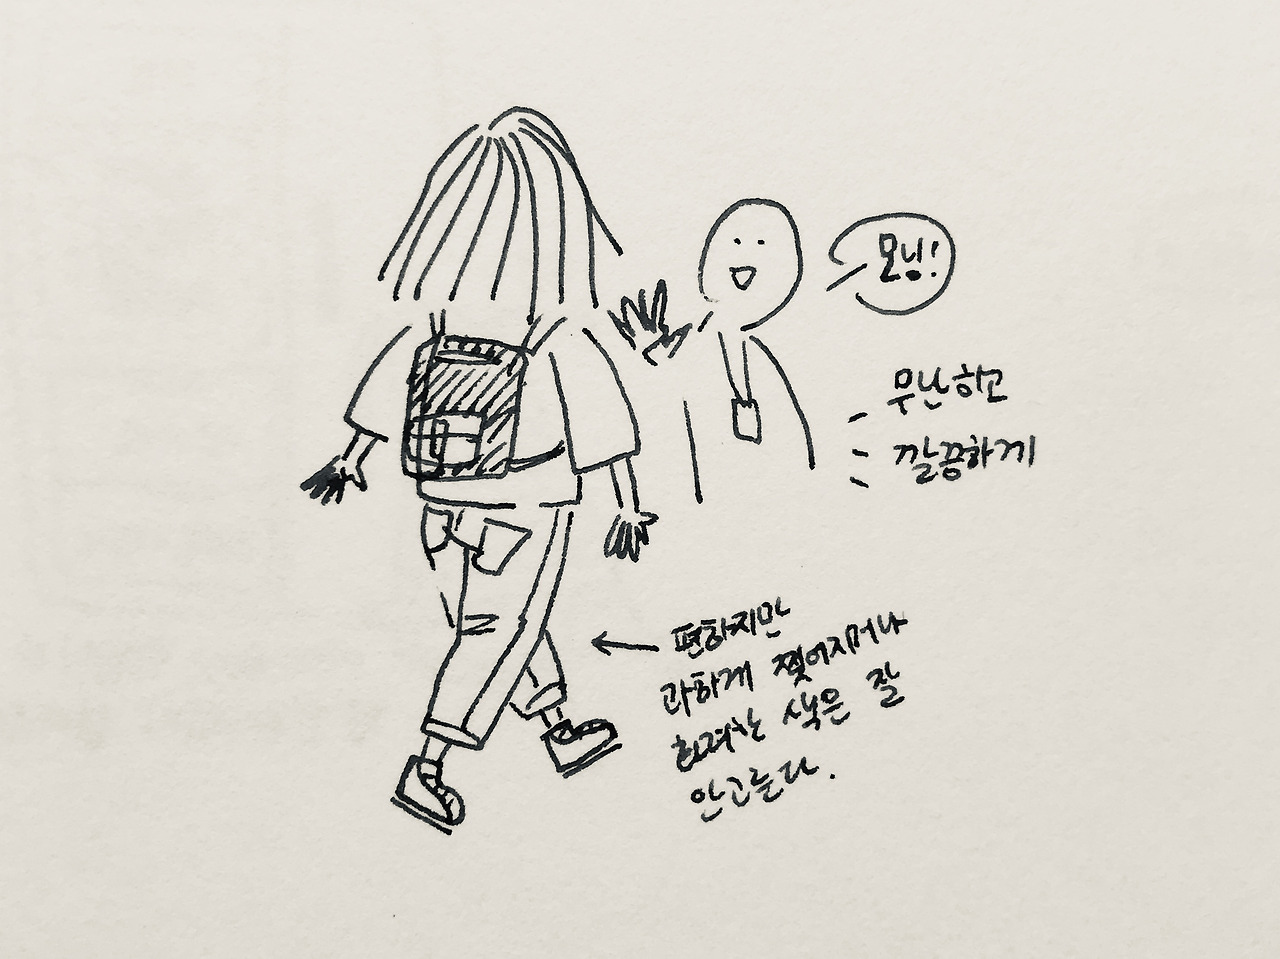 모닝!
무난하고
깔끔하게
편하지만
과하게 찢어지거나
화려한 색은 잘
안고른다.